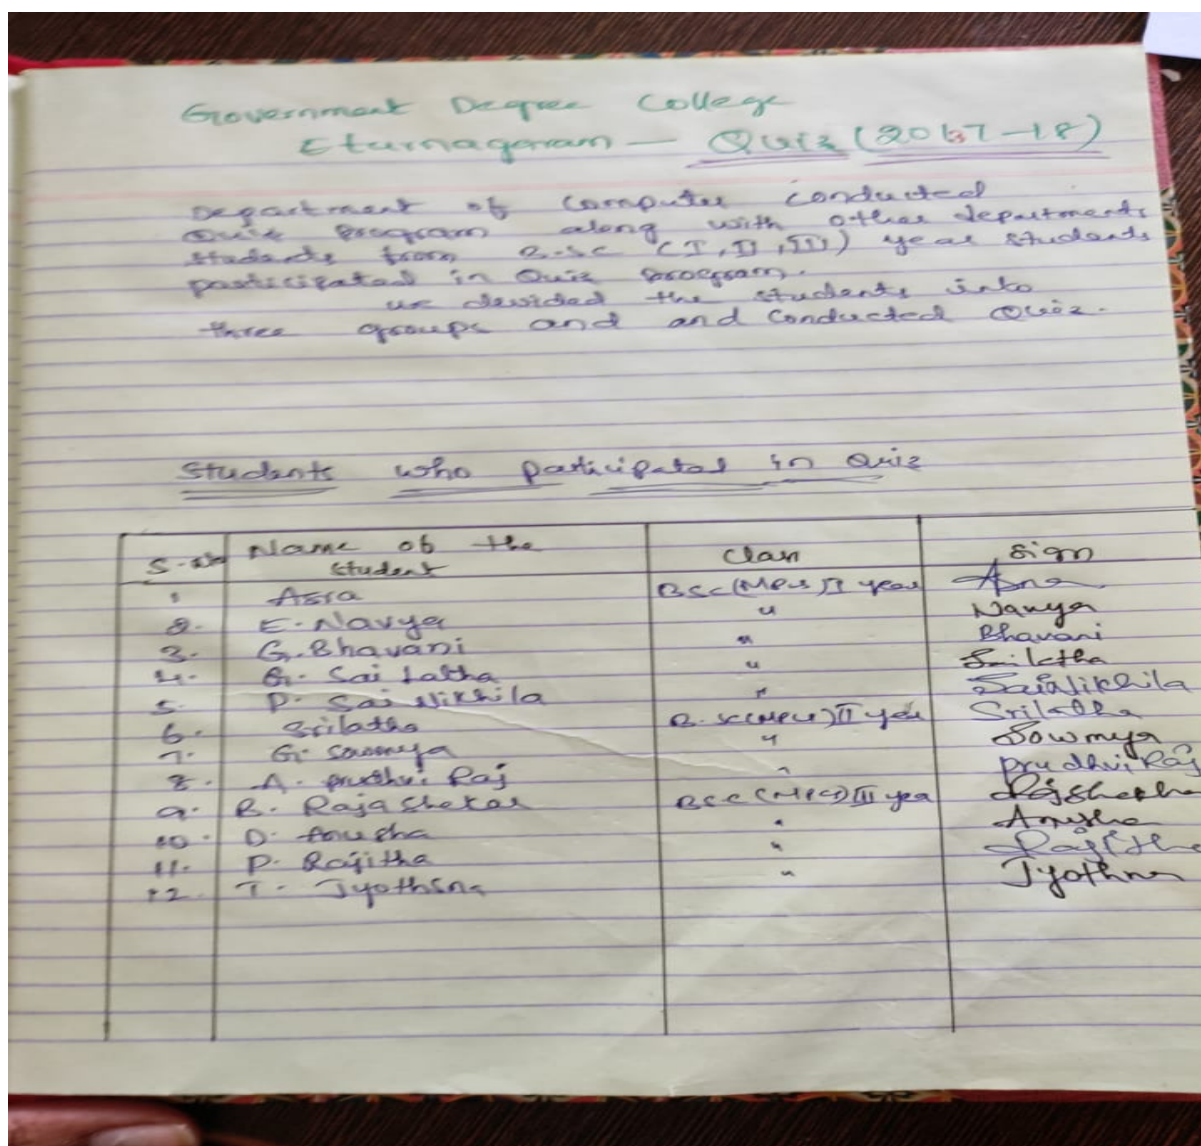 Government Degree College
Eturnagaram — Quiz (2017-18)
Department of Computer conducted
Quiz program along with other departments
students from B.Sc (I, II, III) year students
participated in Quiz program.
we devided the students into
three groups and and conducted Quiz.
Students who participated in Quiz
S.no Name of the student Class Sign
1 Asra BSC(MPCs) I year Asra
2. E. Navya " Navya
3. G. Bhavani " Bhavani
4. G. Sai Latha " Sailatha
5. P. Sai Nikhila " SaiNikhila
6. Srilatha B.Sc(MPCs) II year Srilatha
7. G. Sowmya " Sowmya
8. A. pruthvi Raj " prudhvi Raj
9. B. Raja Shekar BSC(MPCs) III year Rajshekha
10. D. Anusha " Anusha
11. P. Rajitha " Rajitha
12. T. Jyothsna " Jyothna